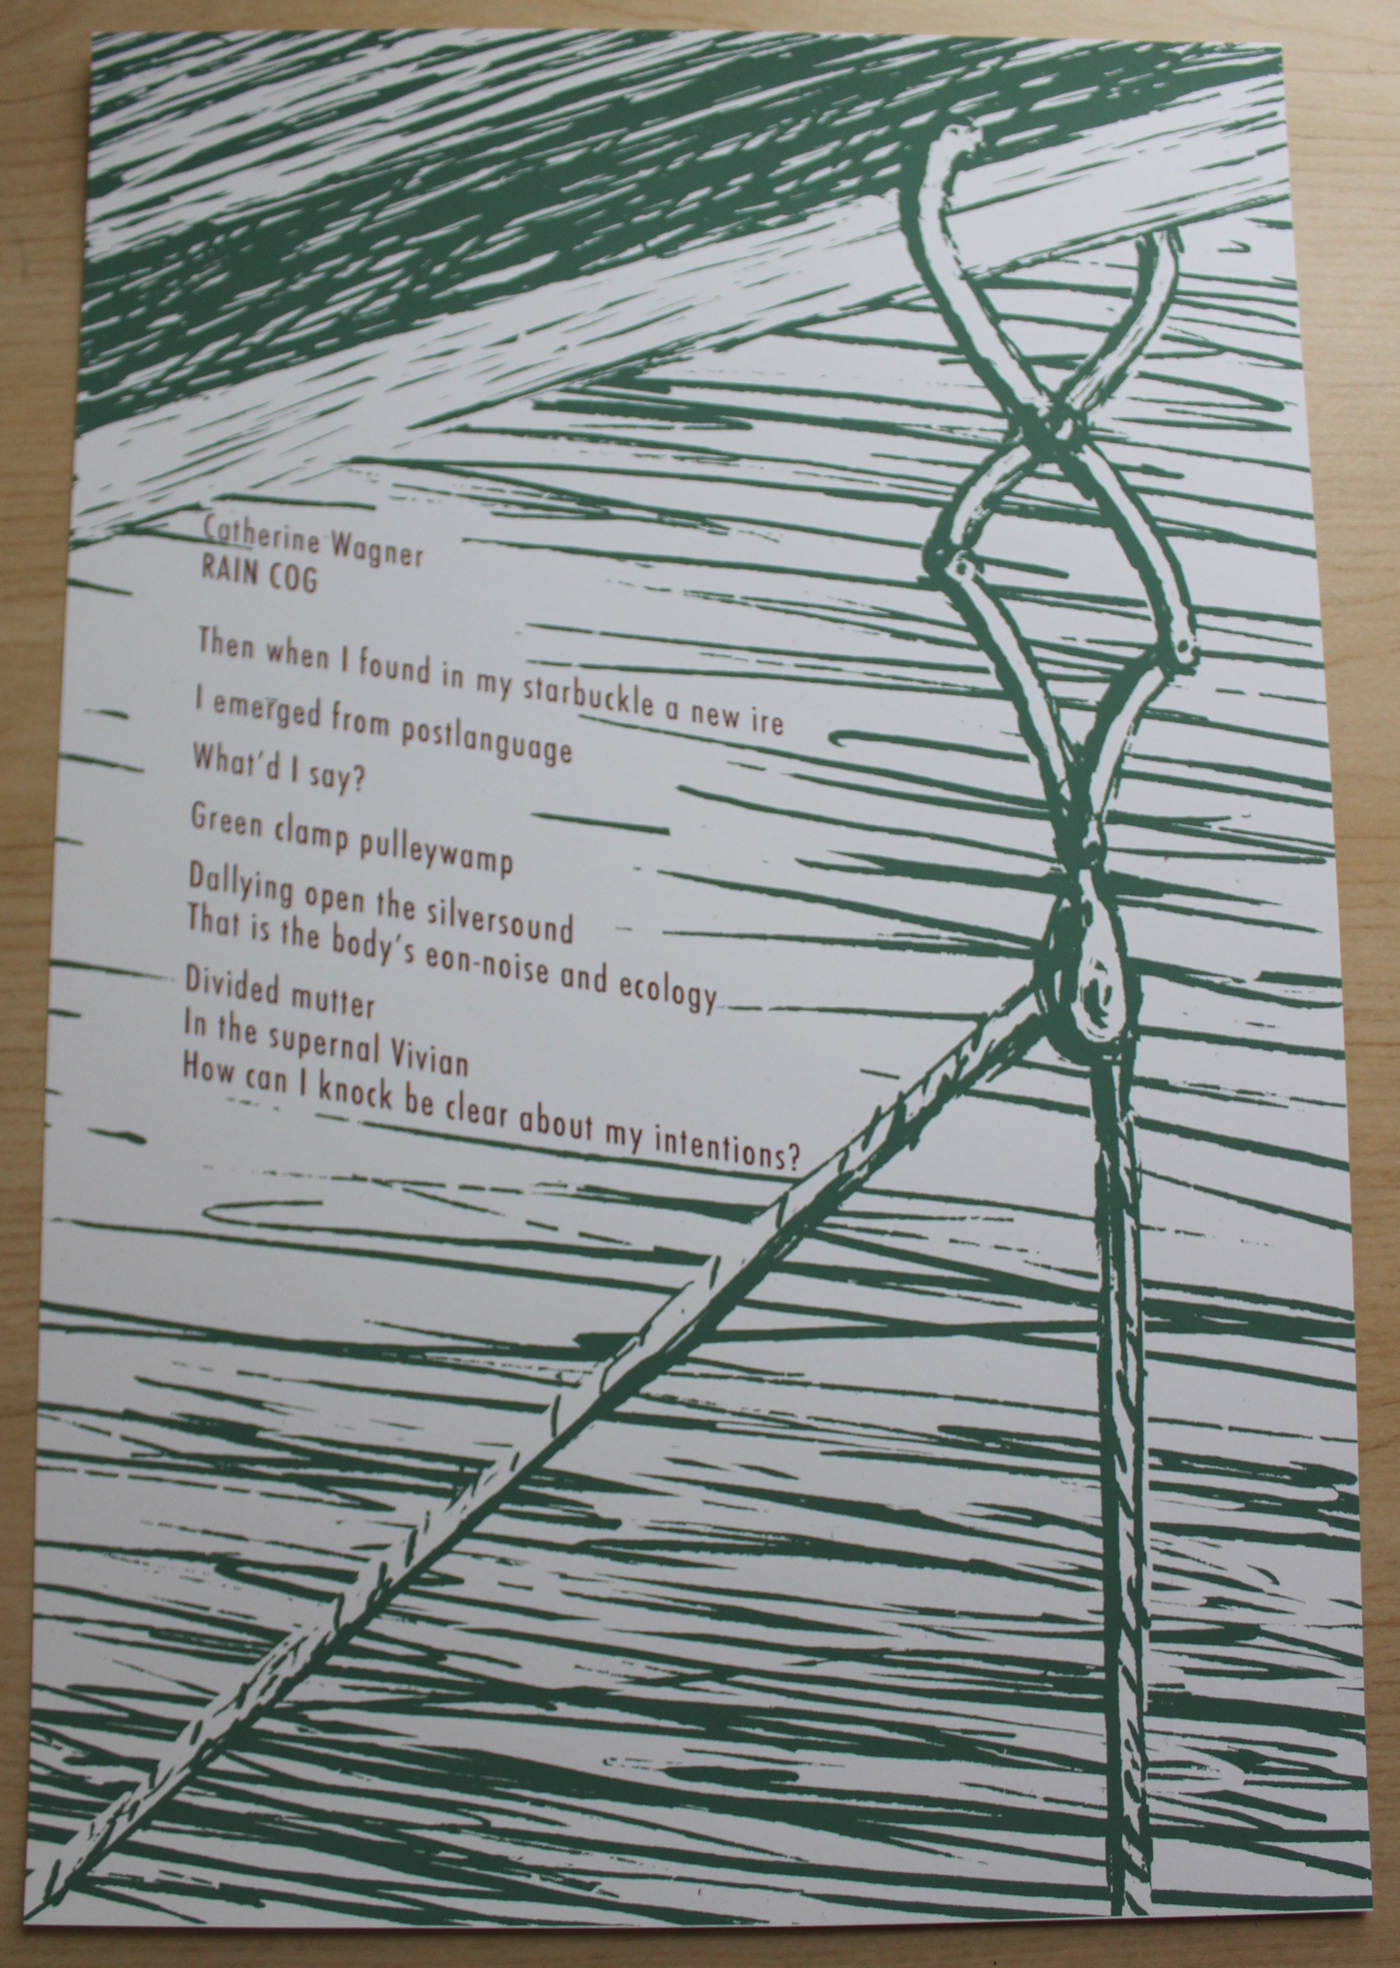 Catherine Wagner
RAIN COG
Then when I found in my starbuckle a new ire
I emerged from postlanguage
What'd I say?
Green clamp pulleywamp
Dallying open the silversound
That is the body's eon-noise and ecology
Divided mutter
In the supernal Vivian
How can I knock be clear about my intentions?